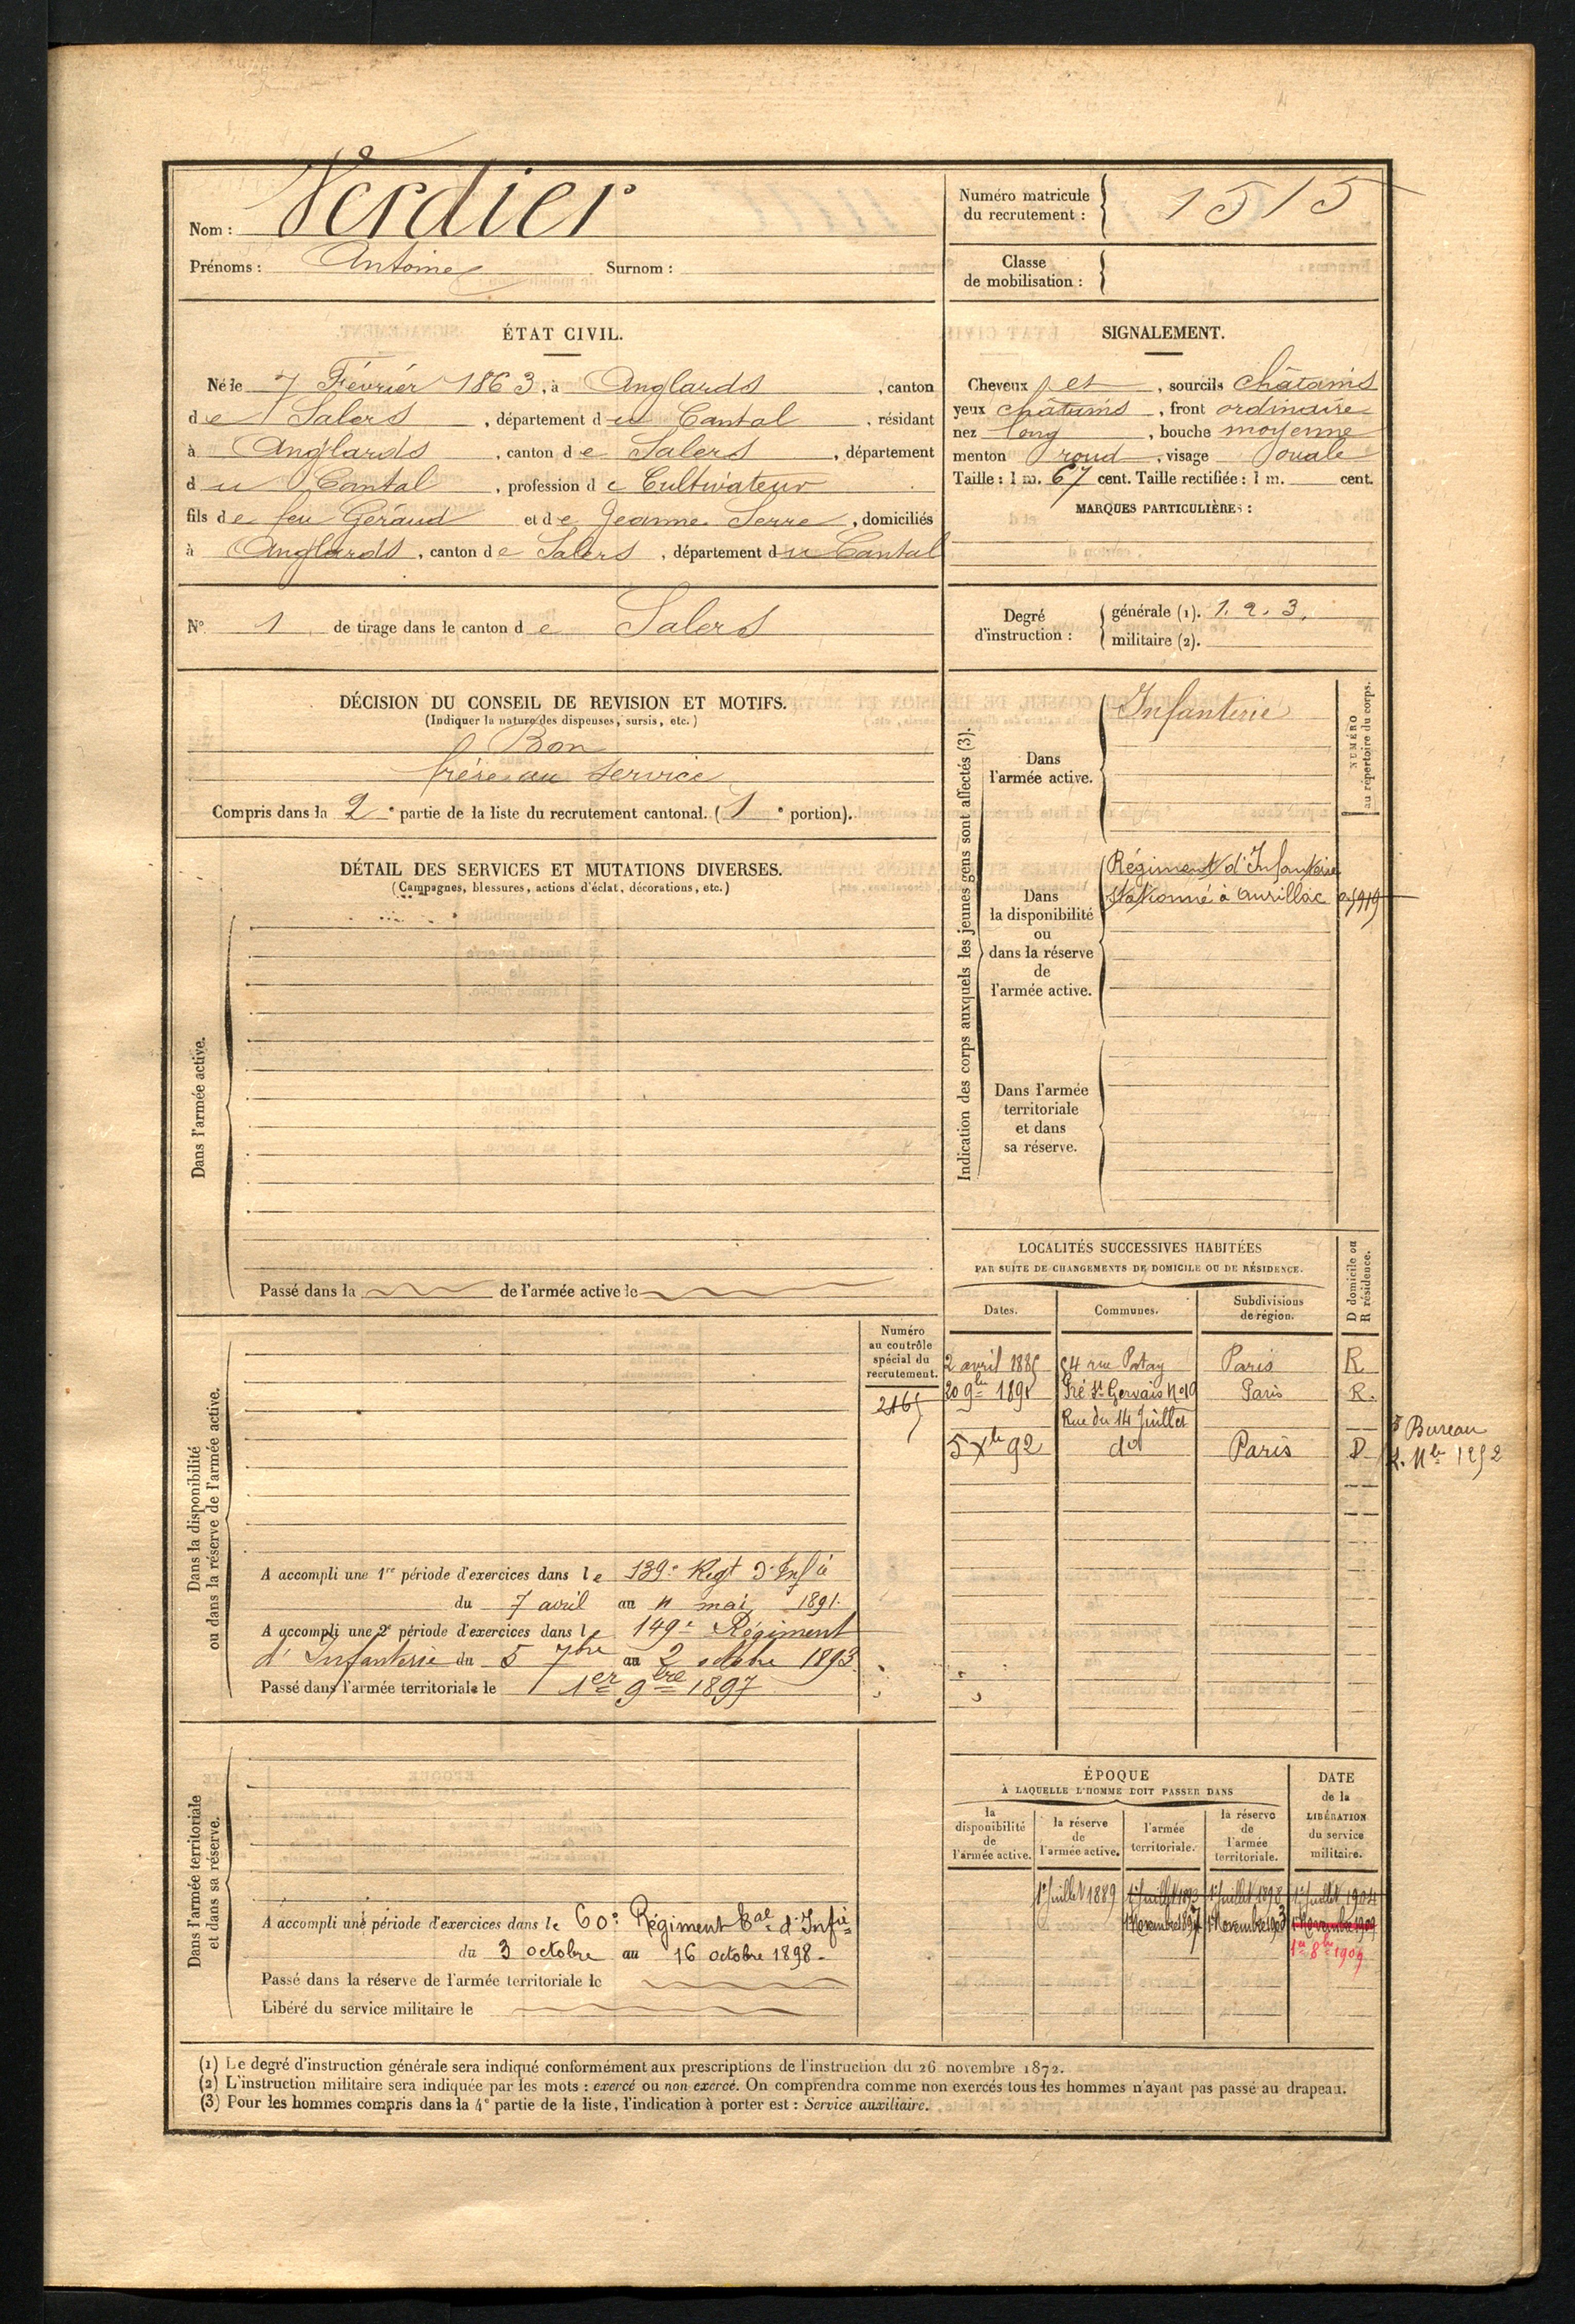 Nom : Verdier
Prénoms : Antoine Surnom :
Numéro matricule
du recrutement : 1515
Classe
de mobilisation :
ÉTAT CIVIL.
Né le 7 Février 1863, à Anglards, canton
de Salers, département du Cantal, résidant
à Anglards, canton de Salers, département
du Cantal, profession de Cultivateur
fils de feu Géraud et de Jeanne Serre, domiciliés
à Anglards, canton de Salers, département du Cantal
N° 1 de tirage dans le canton de Salers
SIGNALEMENT.
Cheveux et, sourcils châtains
yeux châtains, front ordinaire
nez long, bouche moyenne
menton rond, visage ovale
Taille : 1 m. 67 cent. Taille rectifiée : 1 m. cent.
MARQUES PARTICULIÈRES :
Degré
d'instruction :
générale (1). 1. 2. 3.
militaire (2).
DÉCISION DU CONSEIL DE REVISION ET MOTIFS.
(Indiquer la nature des dispenses, sursis, etc.)
Bon
frère au service
Compris dans la 2e partie de la liste du recrutement cantonal. (1e portion).
DÉTAIL DES SERVICES ET MUTATIONS DIVERSES.
(Campagnes, blessures, actions d'éclat, décorations, etc.)
Dans l'armée active.
Passé dans la de l'armée active le
Indication des corps auxquels les jeunes gens sont affectés (3).
NUMÉRO
au répertoire du corps.
Dans
l'armée active.
Infanterie
Dans
la disponibilité
ou
dans la réserve
de
l'armée active.
Régiment d'Infanterie
stationné à Aurillac
Dans l'armée
territoriale
et dans
sa réserve.
LOCALITÉS SUCCESSIVES HABITÉES
PAR SUITE DE CHANGEMENTS DE DOMICILE OU DE RÉSIDENCE.
D domicile ou
R résidence.
Dates. Communes. Subdivisions
de région.
2 avril 1885 54 rue Paris R
20 9bre 1891 Pré St Gervais N°19 Paris R.
Rue du 14 Juillet
5 Xbre 92 do Paris D
Bureau
Dans la disponibilité
ou dans la réserve de l'armée active.
Numéro
au contrôle
spécial du
recrutement.
2165
A accompli une 1re période d'exercices dans le 139e Regt d'Infie
du 7 avril au 4 mai 1891.
A accompli une 2e période d'exercices dans le 149e Régiment
d'Infanterie du 5 7bre au 2 octobre 1893
Passé dans l'armée territoriale le 1er 9bre 1897
Dans l'armée territoriale
et dans sa réserve.
A accompli une période d'exercices dans le 60e Régiment tal d'Infie
du 3 octobre au 16 octobre 1898.
Passé dans la réserve de l'armée territoriale le
Libéré du service militaire le
ÉPOQUE
À LAQUELLE L'HOMME DOIT PASSER DANS
DATE
de la
LIBÉRATION
du service
militaire.
la
disponibilité
de
l'armée active.
la réserve
de
l'armée active.
l'armée
territoriale.
la réserve
de
l'armée
territoriale.
1er Juillet 1889 1er Juillet 1893 1er Juillet 1898 1er Juillet 1904
1er Novembre 1897 1er Novembre 1903 1er Novembre 1909
1er 8bre 1909
(1) Le degré d'instruction générale sera indiqué conformément aux prescriptions de l'instruction du 26 novembre 1872.
(2) L'instruction militaire sera indiquée par les mots : exercé ou non exercé. On comprendra comme non exercés tous les hommes n'ayant pas passé au drapeau.
(3) Pour les hommes compris dans la 4e partie de la liste, l'indication à porter est : Service auxiliaire.